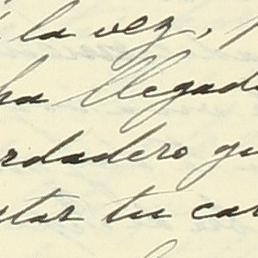 la vez,
ha llegad
rdadero qu
star tu car